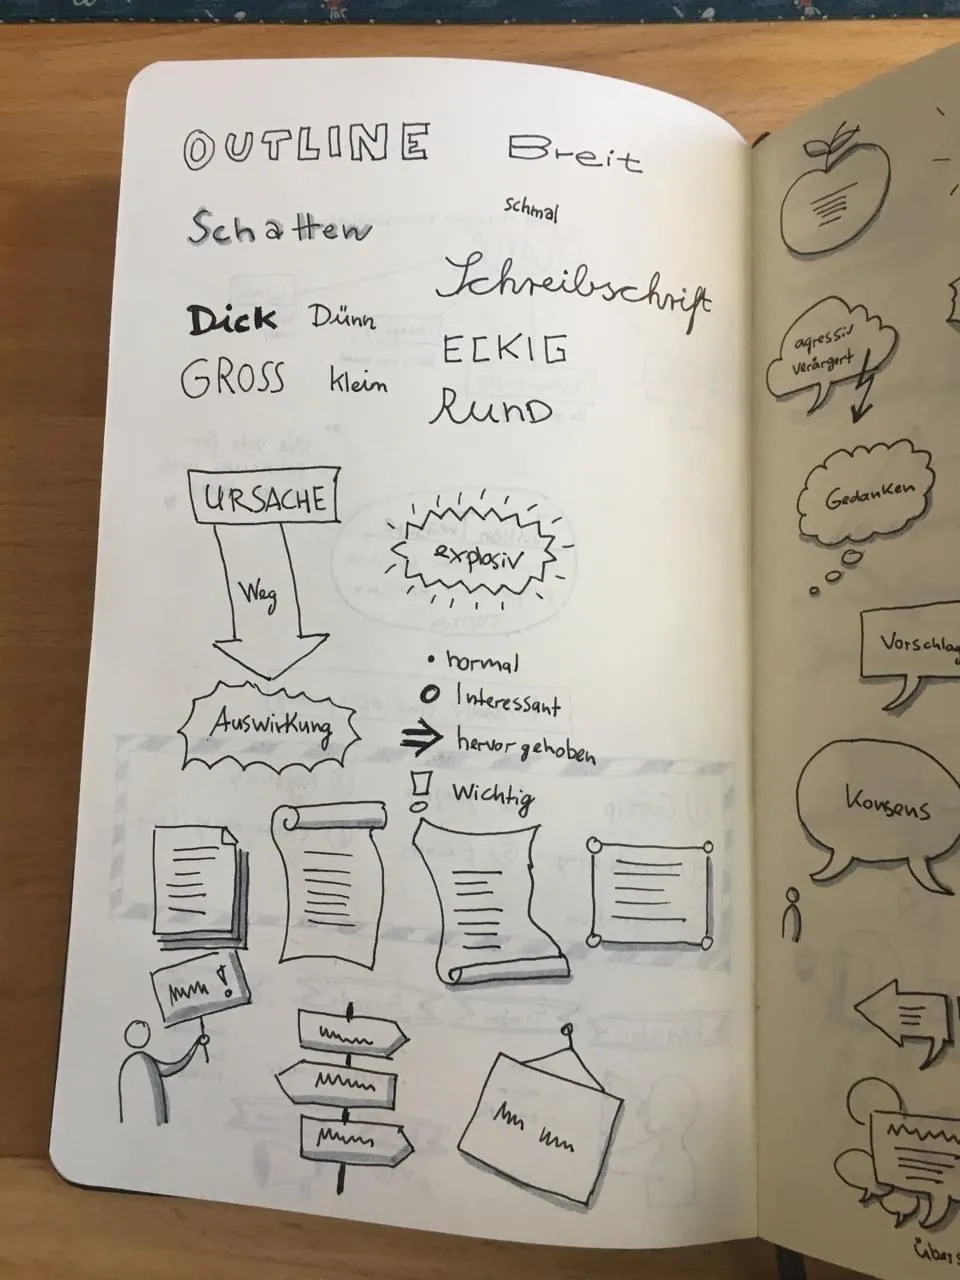 OUTLINE
Breit
Schatten
schmal
Schreibschrift
Dick Dünn
ECKIG
GROSS klein
RUND
URSACHE
Weg
Auswirkung
explosiv
• normal
Interessant
hervorgehoben
! Wichtig
!
agressiv
verärgert
Gedanken
Vorschlag
Konsens